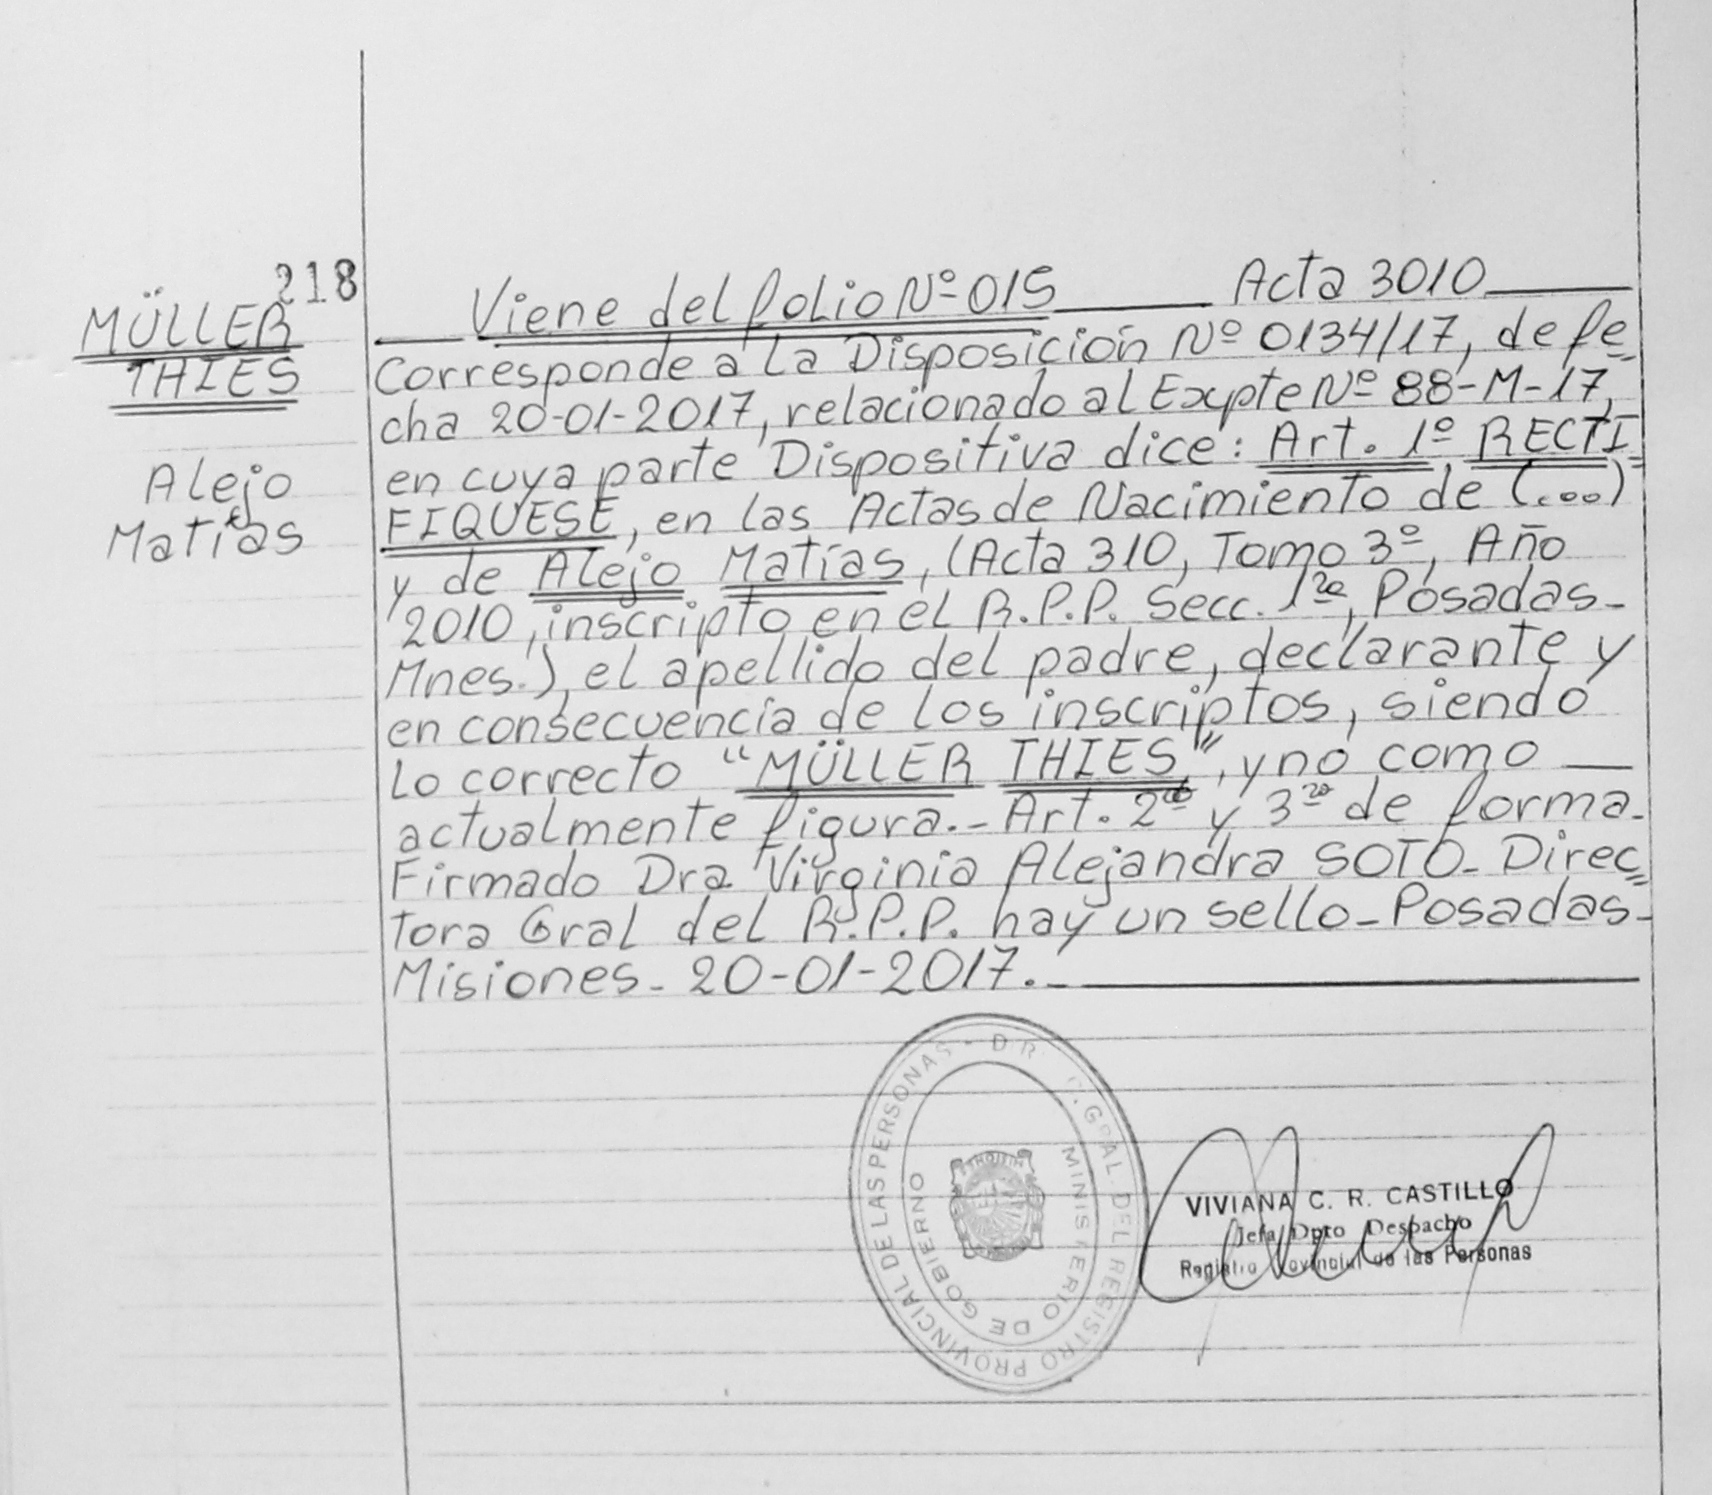 218
MÜLLER
THIES
Alejo
Matías
Viene del folio Nº 015 Acta 3010
Corresponde a la Disposición Nº 0134/17, de fe=
cha 20-01-2017, relacionado al Expte Nº 88-M-17,
en cuya parte Dispositiva dice: Art. 1º RECTI=
FIQUESE, en las Actas de Nacimiento de (...)
y de Alejo Matías, (Acta 310, Tomo 3º, Año
2010, inscripto en el R.P.P. Secc. 1ra, Posadas-
Mnes.), el apellido del padre, declarante y
en consecuencia de los inscriptos, siendo
lo correcto "MÜLLER THIES", y no como
actualmente figura.- Art. 2do y 3ro de forma.
Firmado Dra Virginia Alejandra SOTO- Direc=
tora Gral del R.P.P. hay un sello- Posadas-
Misiones- 20-01-2017.-
GRAL DEL REGISTRO PROVINCIAL DE LAS PERSONAS - DIR
MINISTERIO DE GOBIERNO
VIVIANA C. R. CASTILLO
Jefa Dpto Despacho
Registro Provincial de las Personas